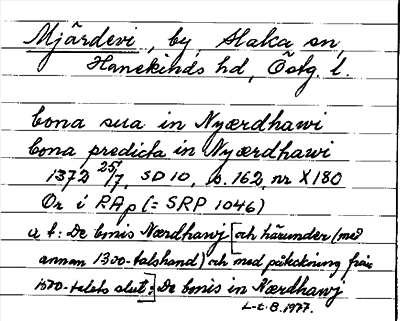 Mjärdevi, by, Slaka sn,
Hanekinds hd, Östg. l.
bona sua in Nyærdhawi
bona predicta in Nyærdhawi
1372 25/7, SD 10, s. 162, nr X180
Or i RAp (= SRP 1046)
a t: De bonis Nærdhawj [och härunder (med
annan 1300-talshand) och med påteckning från
1500-talets slut:] De bonis in Nærdhawj
L-t. B. 1977.